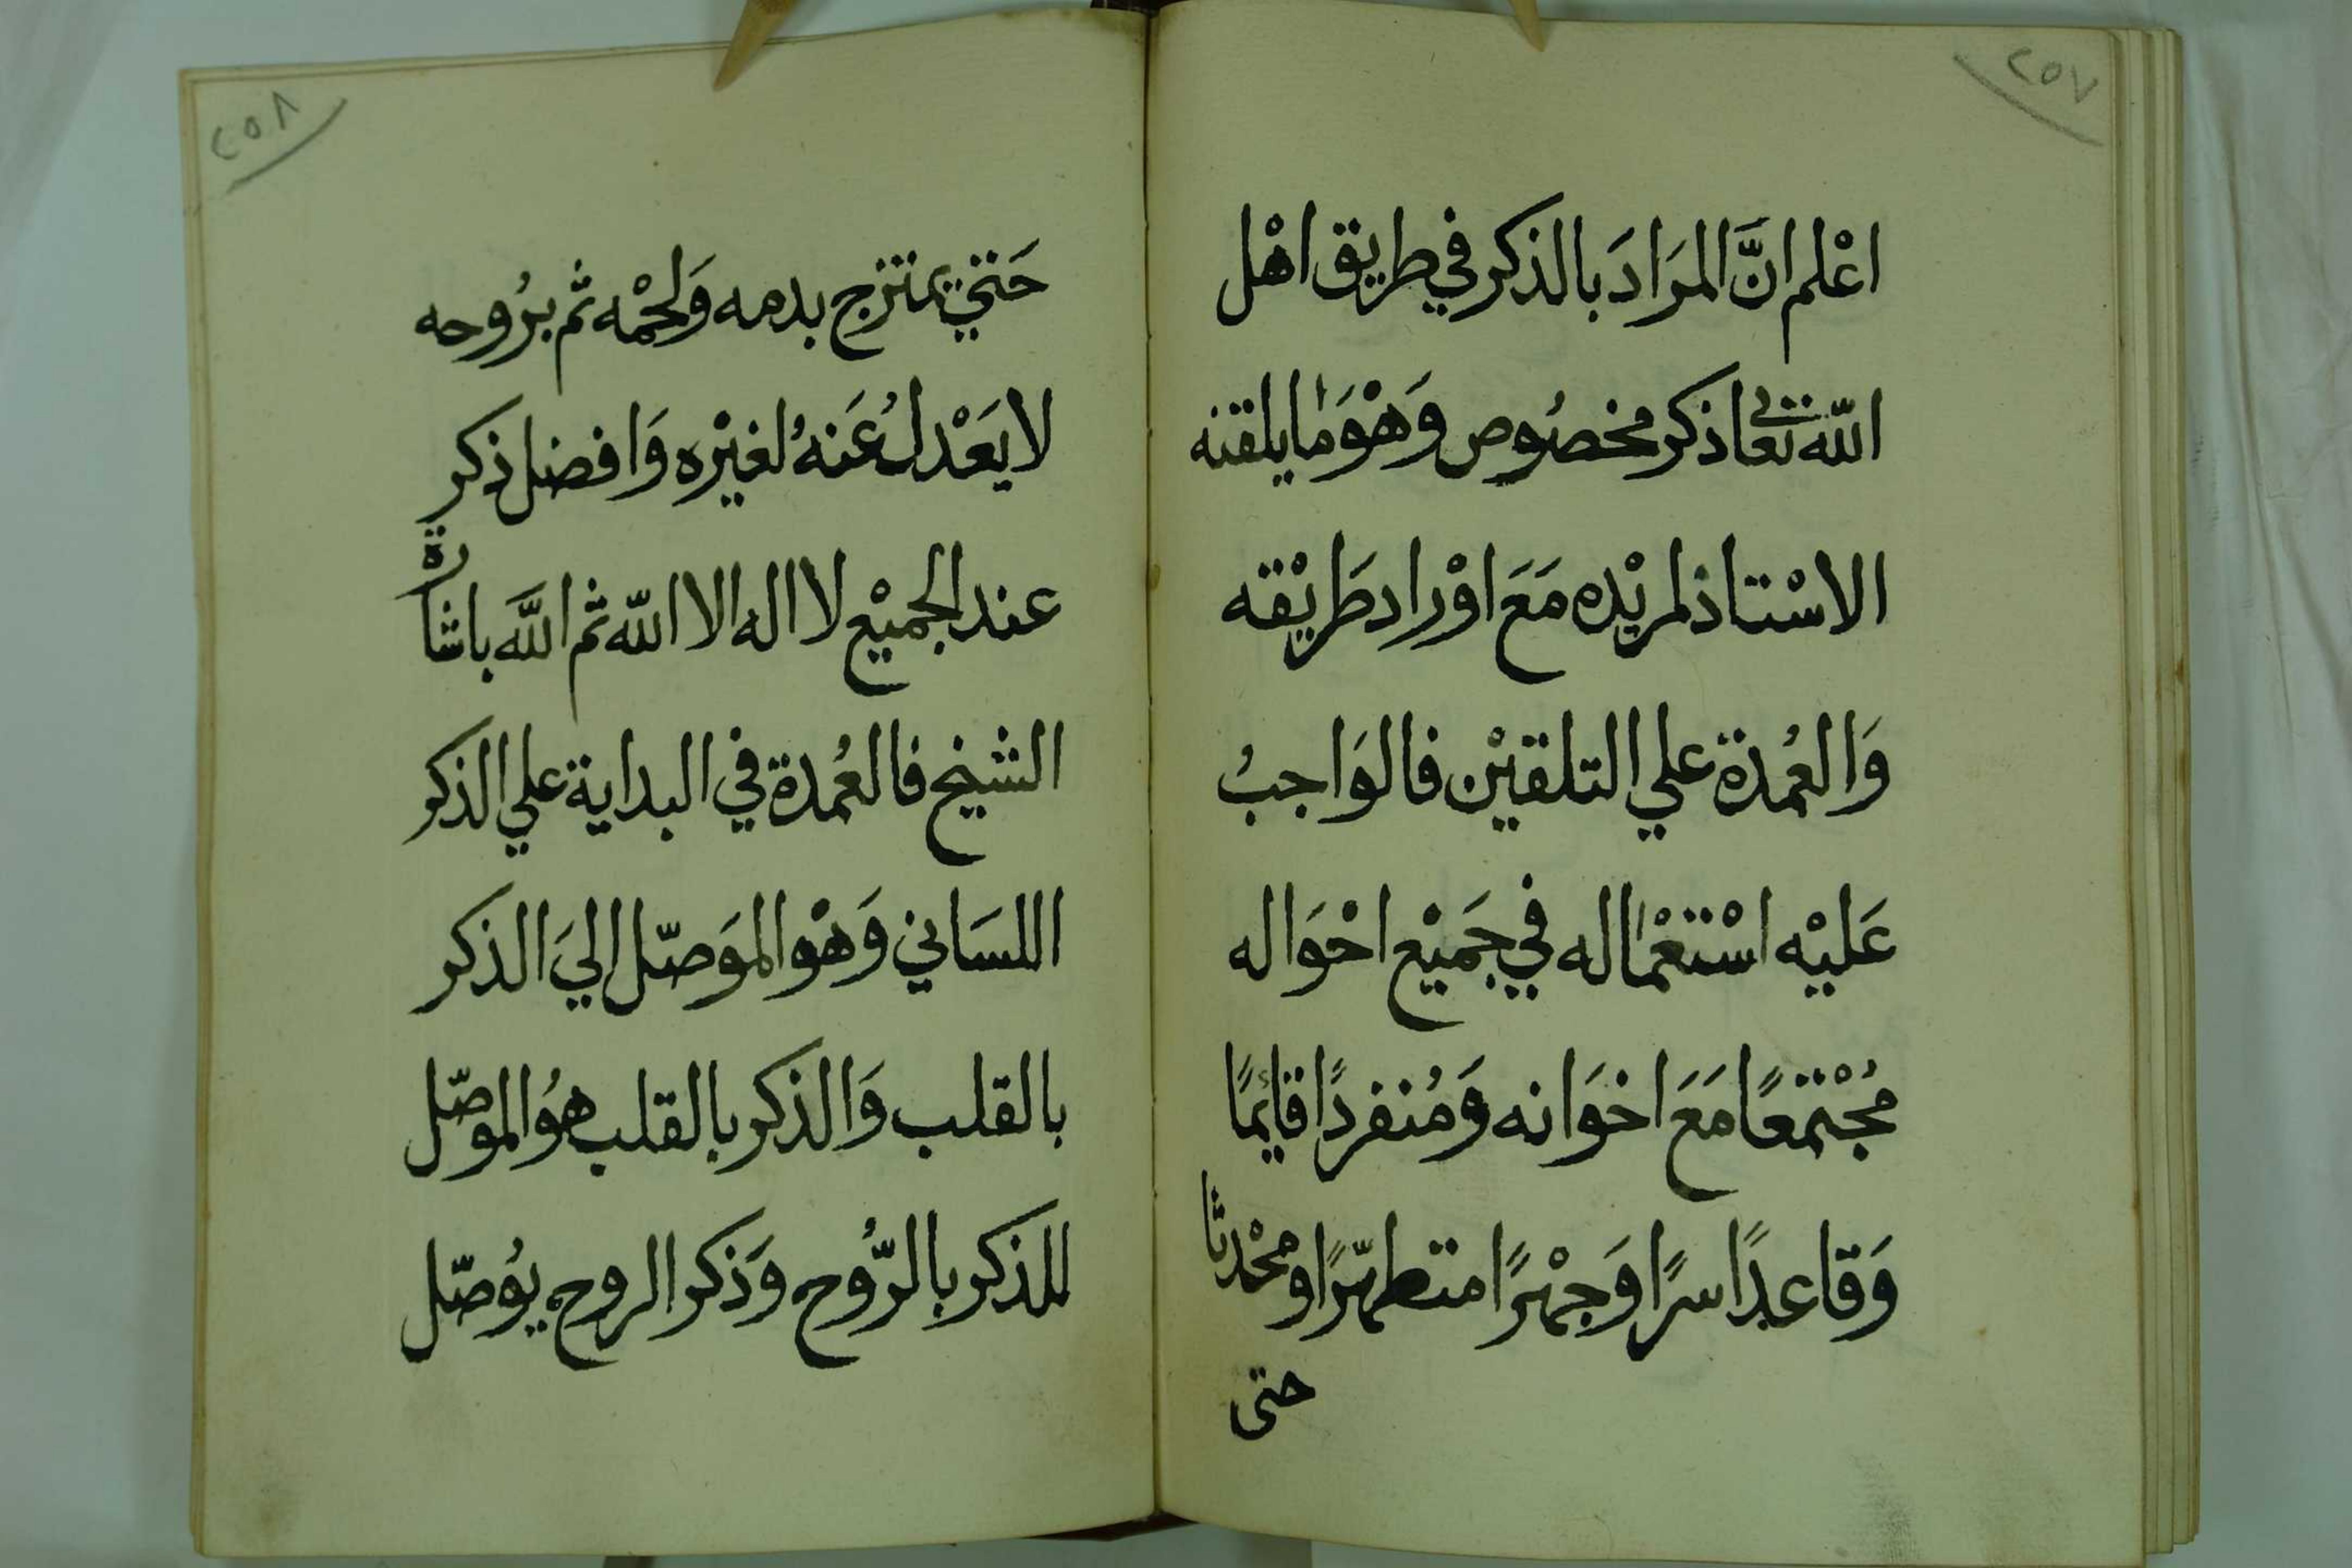 ٢٥٧
اعْلم انَّ المرَادَ بالذكر في طريق اهْل
اللّه تعالى ذكر مخصُوص وَهْوَ مَا يلقنه
الاسْتاذ لمريْده مَعَ اوْراد طَريْقه
وَالعُمدة علي التلقيْن فالوَاجبُ
عَليْه اسْتعْماله في جَميْع احْوَاله
مُجْتمعًا مَعَ اخوَانه وَمُنفردًا قائمًا
وَقاعدًا سرًا وَجهْرًا متطهّرًا ومحْدثا
حتى
٢٥٨
حَتي يمتزج بدمه وَلحْمه ثم برُوحه
لا يَعْدلُ عَنهُ لغيْره وَافضل ذكر
عند الجميْع لا اله الا اللّه ثم اللَّه باشارة
الشيخ فالعُمدة في البداية علي الذكر
اللسَاني وَهْو الموَصّل اليَ الذكر
بالقلب وَالذكر بالقلب هوُ الموصّل
للذكر بالرُّوح وَذكر الروح يوُصّل